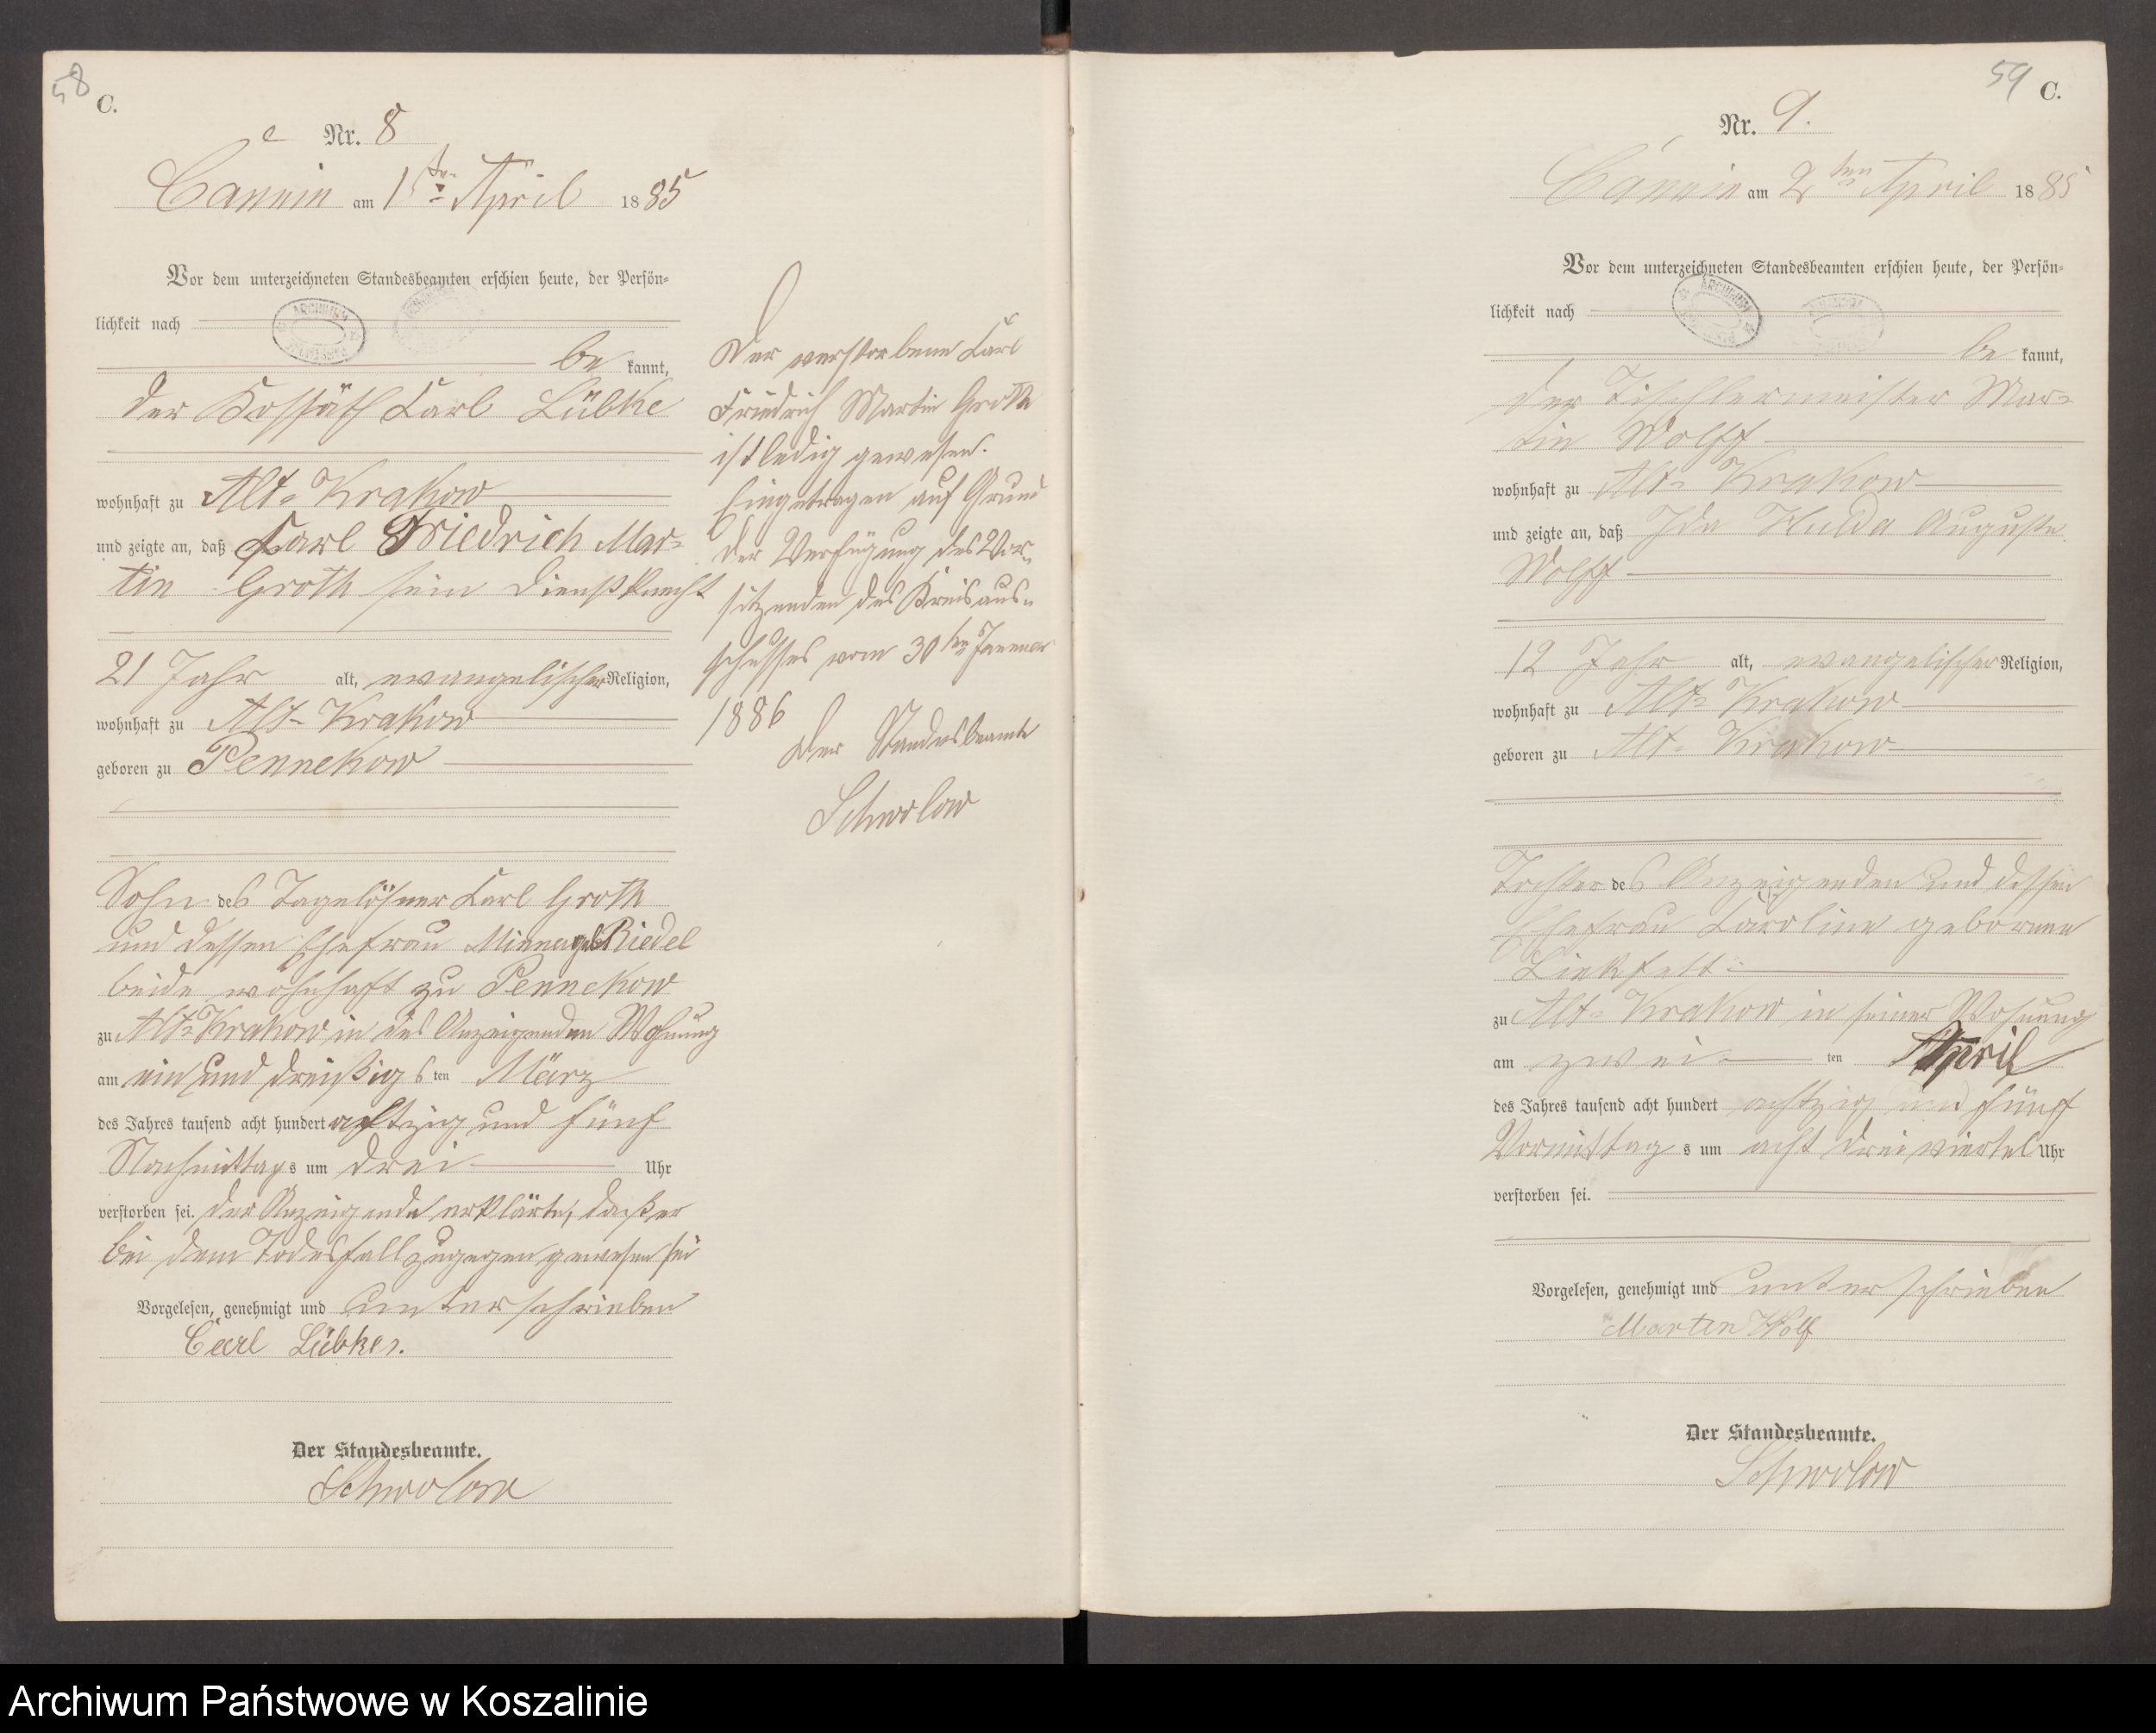 58
C.
Nr. 8
Cannin am 1ten April 1885
Vor dem unterzeichneten Standesbeamten erschien heute, der Persön-
lichkeit nach
be kannt,
der Kossäth Carl Lübke
wohnhaft zu Alt-Krakow
und zeigte an, daß Carl Friedrich Mar-
tin Groth sein Dienstknecht
21 Jahr alt, evangelischer Religion,
wohnhaft zu Alt-Krakow
geboren zu Pennekow
Sohn des Tagelöhner Carl Groth
und dessen Ehefrau Minna geb Riedel
beide wohnhaft zu Pennekow
zu Alt-Krakow in des Anzeigenden Wohnung
am ein und dreißigs ten März
des Jahres tausend acht hundert achtzig und fünf
Nachmittag s um drei Uhr
verstorben sei. Der Anzeigende erklärte, daß er
bei dem Todesfall zugegen gewesen sei
Vorgelesen, genehmigt und unterschrieben
Carl Lübke.
Der Standesbeamte.
Schwolow
Der verstorbene Carl
Friedrich Martin Groth
ist ledig gewesen.
Eingetragen auf Grund
der Verfügung des Vor-
sitzenden des Kreisaus-
schusses vom 30ten Januar
1886
Der Standesbeamte
Schwolow
59
C.
Nr. 9.
Cannin am 2ten April 1885
Vor dem unterzeichneten Standesbeamten erschien heute, der Persön-
lichkeit nach
be kannt,
der Tischlermeister Mar-
tin Wolff
wohnhaft zu Alt-Krakow
und zeigte an, daß Ida Hulda Auguste
Wolff
12 Jahr alt, evangelischer Religion,
wohnhaft zu Alt-Krakow
geboren zu Alt-Krakow
Tochter des Anzeigenden und dessen
Ehefrau Caroline geborene
Liekfelt
zu Alt-Krakow in seiner Wohnung
am zwei ten April
des Jahres tausend acht hundert achtzig und fünf
Vormittag s um acht dreiviertel Uhr
verstorben sei.
Vorgelesen, genehmigt und unterschrieben
Martin Wolf
Der Standesbeamte.
Schwolow
Archiwum Państwowe w Koszalinie